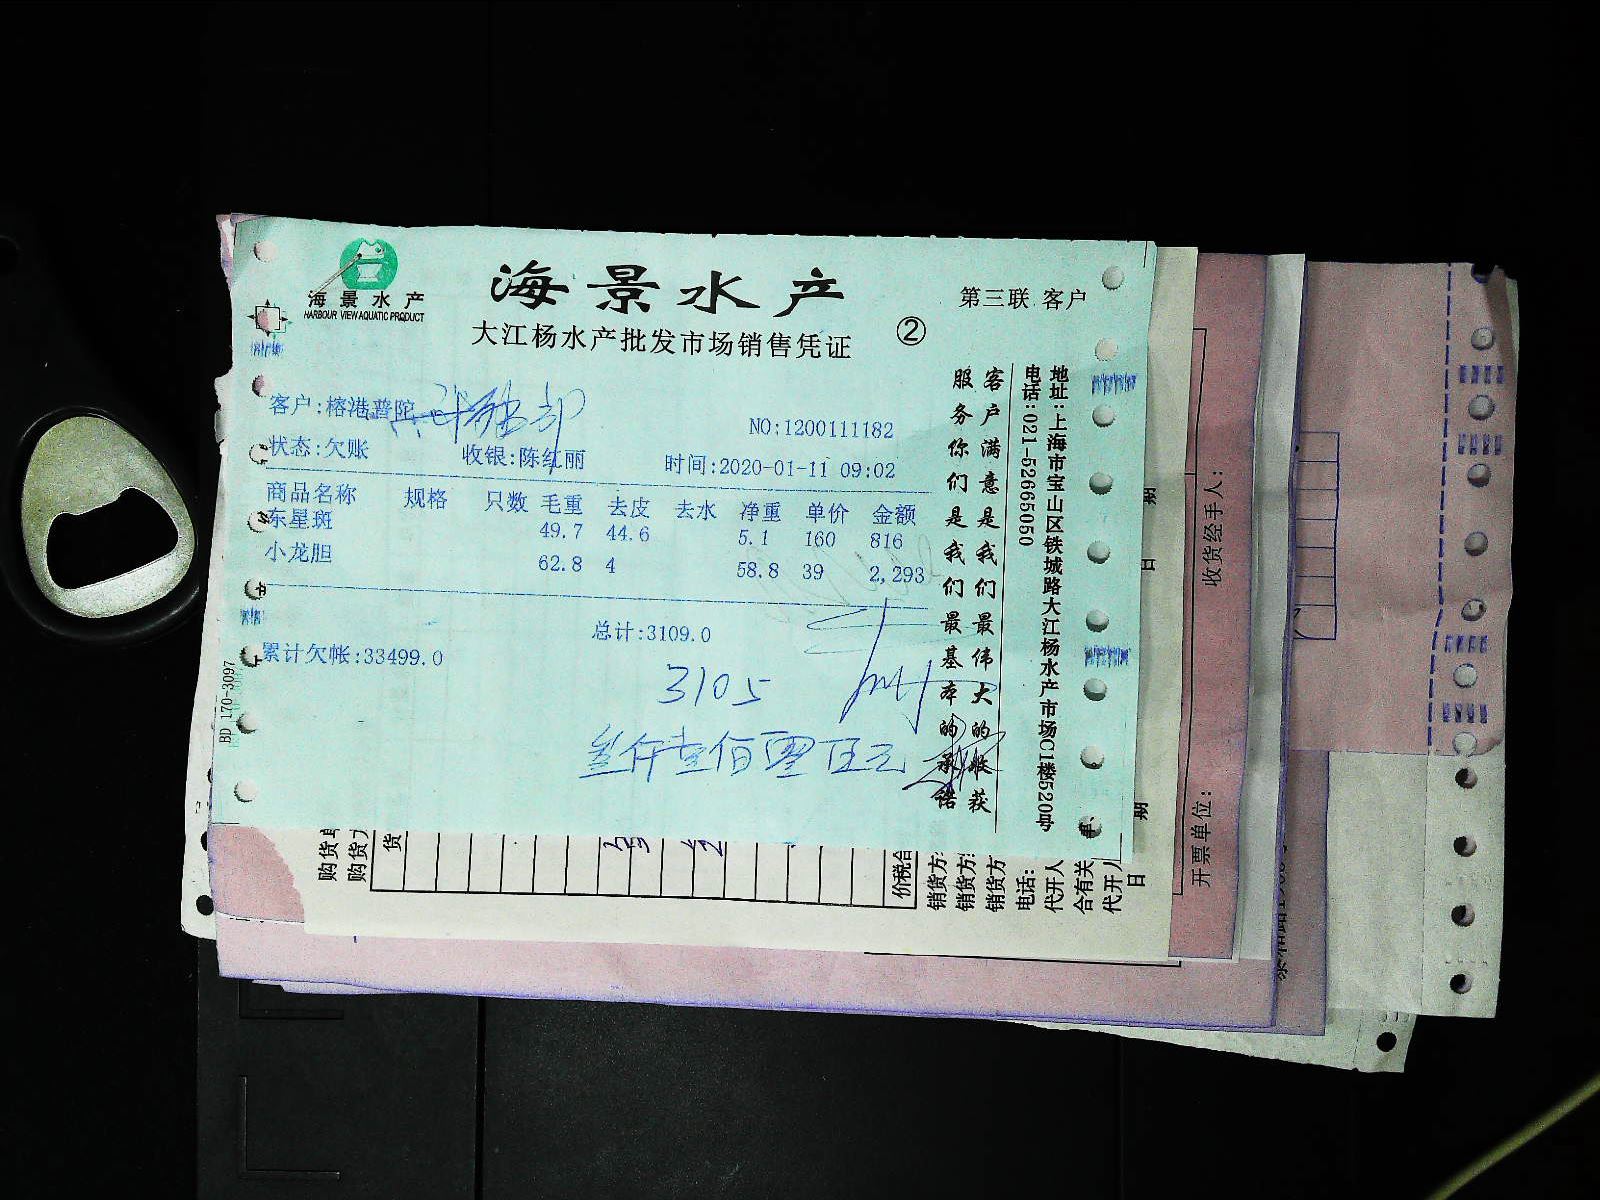 海景水产
HARBOUR VIEW AQUATIC PRODUCT
海景水产
大江杨水产批发市场销售凭证
②
第三联 客户
客户:榕港普陀
NO:1200111182
状态:欠账 收银:陈红丽 时间:2020-01-11 09:02
商品名称 规格 只数 毛重 去皮 去水 净重 单价 金额
东星斑 49.7 44.6 5.1 160 816
小龙胆 62.8 4 58.8 39 2,293
总计:3109.0
累计欠帐:33499.0
3105
叁仟壹佰零伍元
客户满意是我们最伟大的收获
服务你们是我们最基本的承诺
地址:上海市宝山区铁城路大江杨水产市场C1楼520号
电话:021-52665050
BD 170-3097
购货
购货
货
价税合
销货方
销货方
销货方
电话:
代开人
合有关
代开人
日
期
日
期
收货经手人:
开票单位: